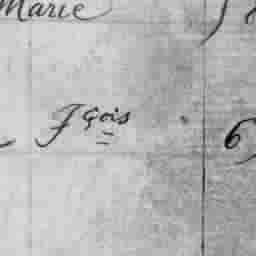 Marie
Fçois 6